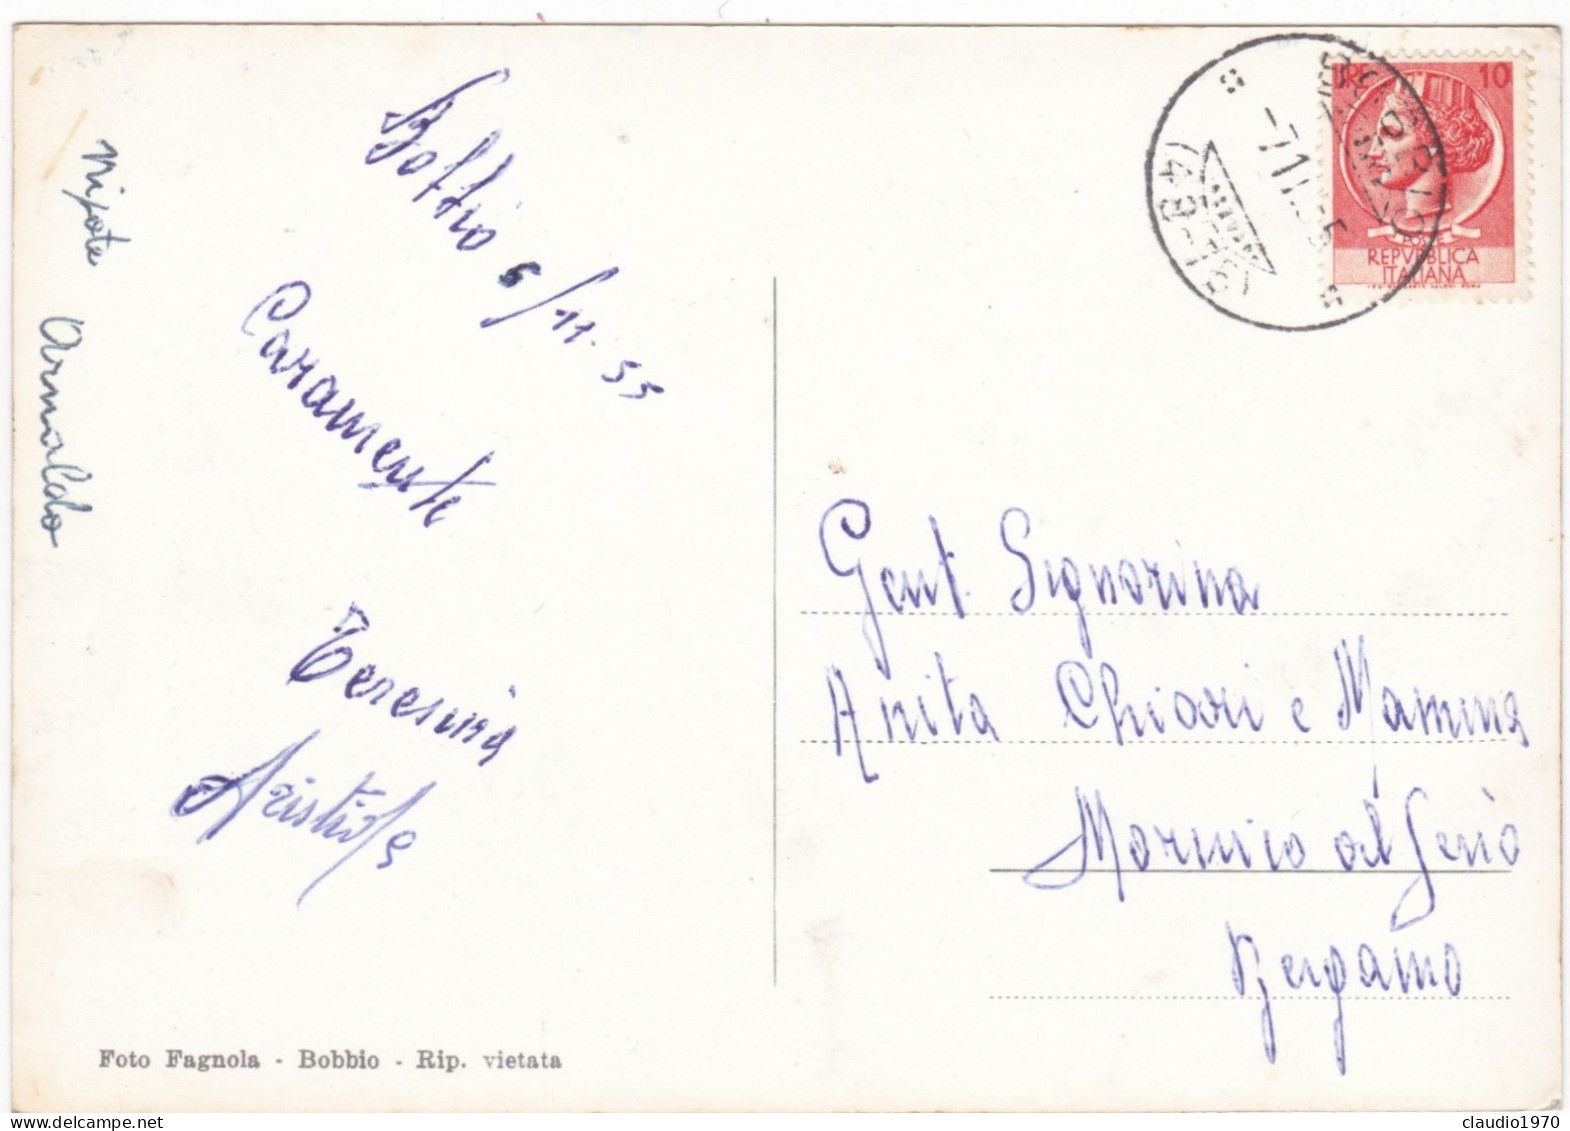 Bobbio 6/11.55
Caramente
Teresina
Aristide
nipote Arnaldo
10
REPVBBLICA
ITALIANA
Gent. Signorina
Anita Chiari e Mamma
Mornico al Serio
Bergamo
Foto Fagnola - Bobbio - Rip. vietata
claudio1970